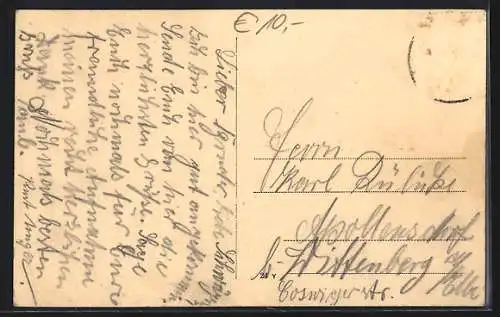 € 10,-
Lieber Bruder
Bin hier gut angekommen
Sende Euch von hier die
herzlichsten Grüße. Sage
Euch nochmals für Eure
freundliche Aufnahme
meinen recht herzlichen
Dank Nochmals besten
Herrn
Karl
Apollensdorf
b/ Wittenberg a/
Elbe
Coswigerstr.